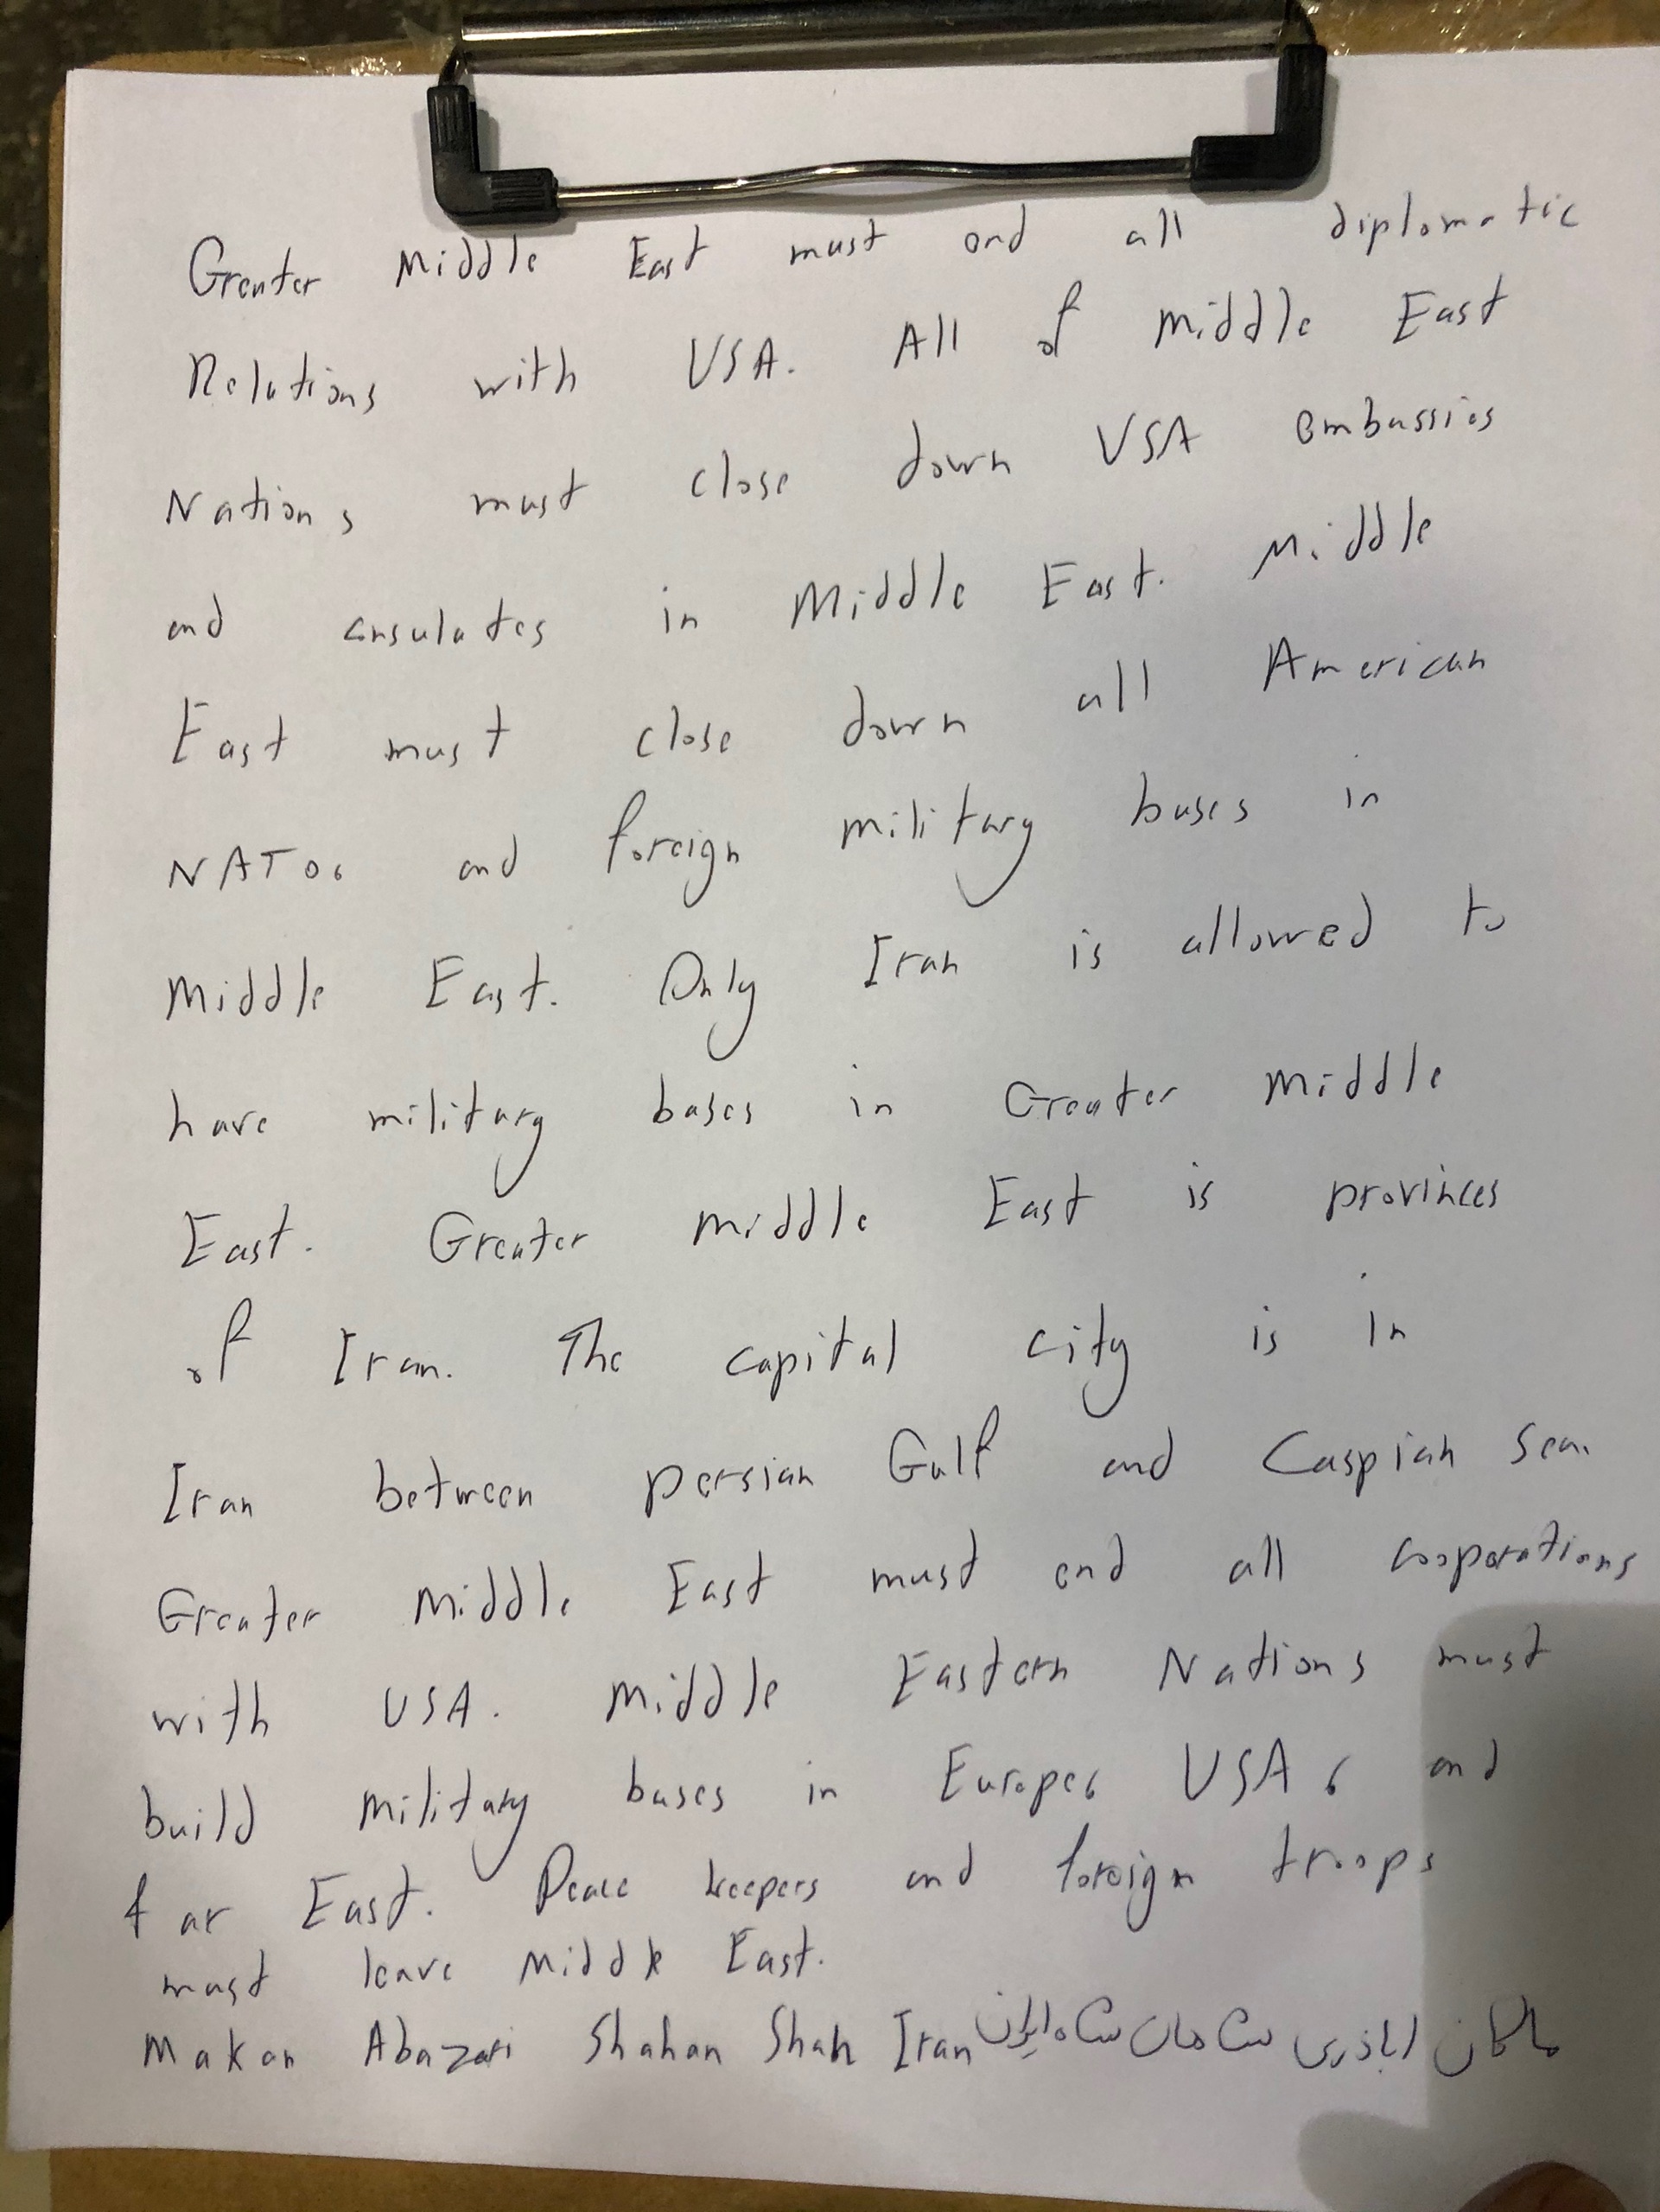 Greater Middle East must end all diplomatic
Relations with USA. All of Middle East
Nations must close down USA embassies
and consulates in Middle East. Middle
East must close down all American
NATO، and foreign military bases in
Middle East. Only Iran is allowed to
have military bases in Greater Middle
East. Greater Middle East is provinces
of Iran. The capital city is in
Iran between Persian Gulf and Caspian Sea.
Greater Middle East must end all cooperations
with USA. Middle Eastern Nations must
build military bases in Europe، USA، and
far East. Peace keepers and foreign troops
must leave Middle East.
Makan Abazari Shahan Shah Iran ماکان اباذری شاهان شاه ایران